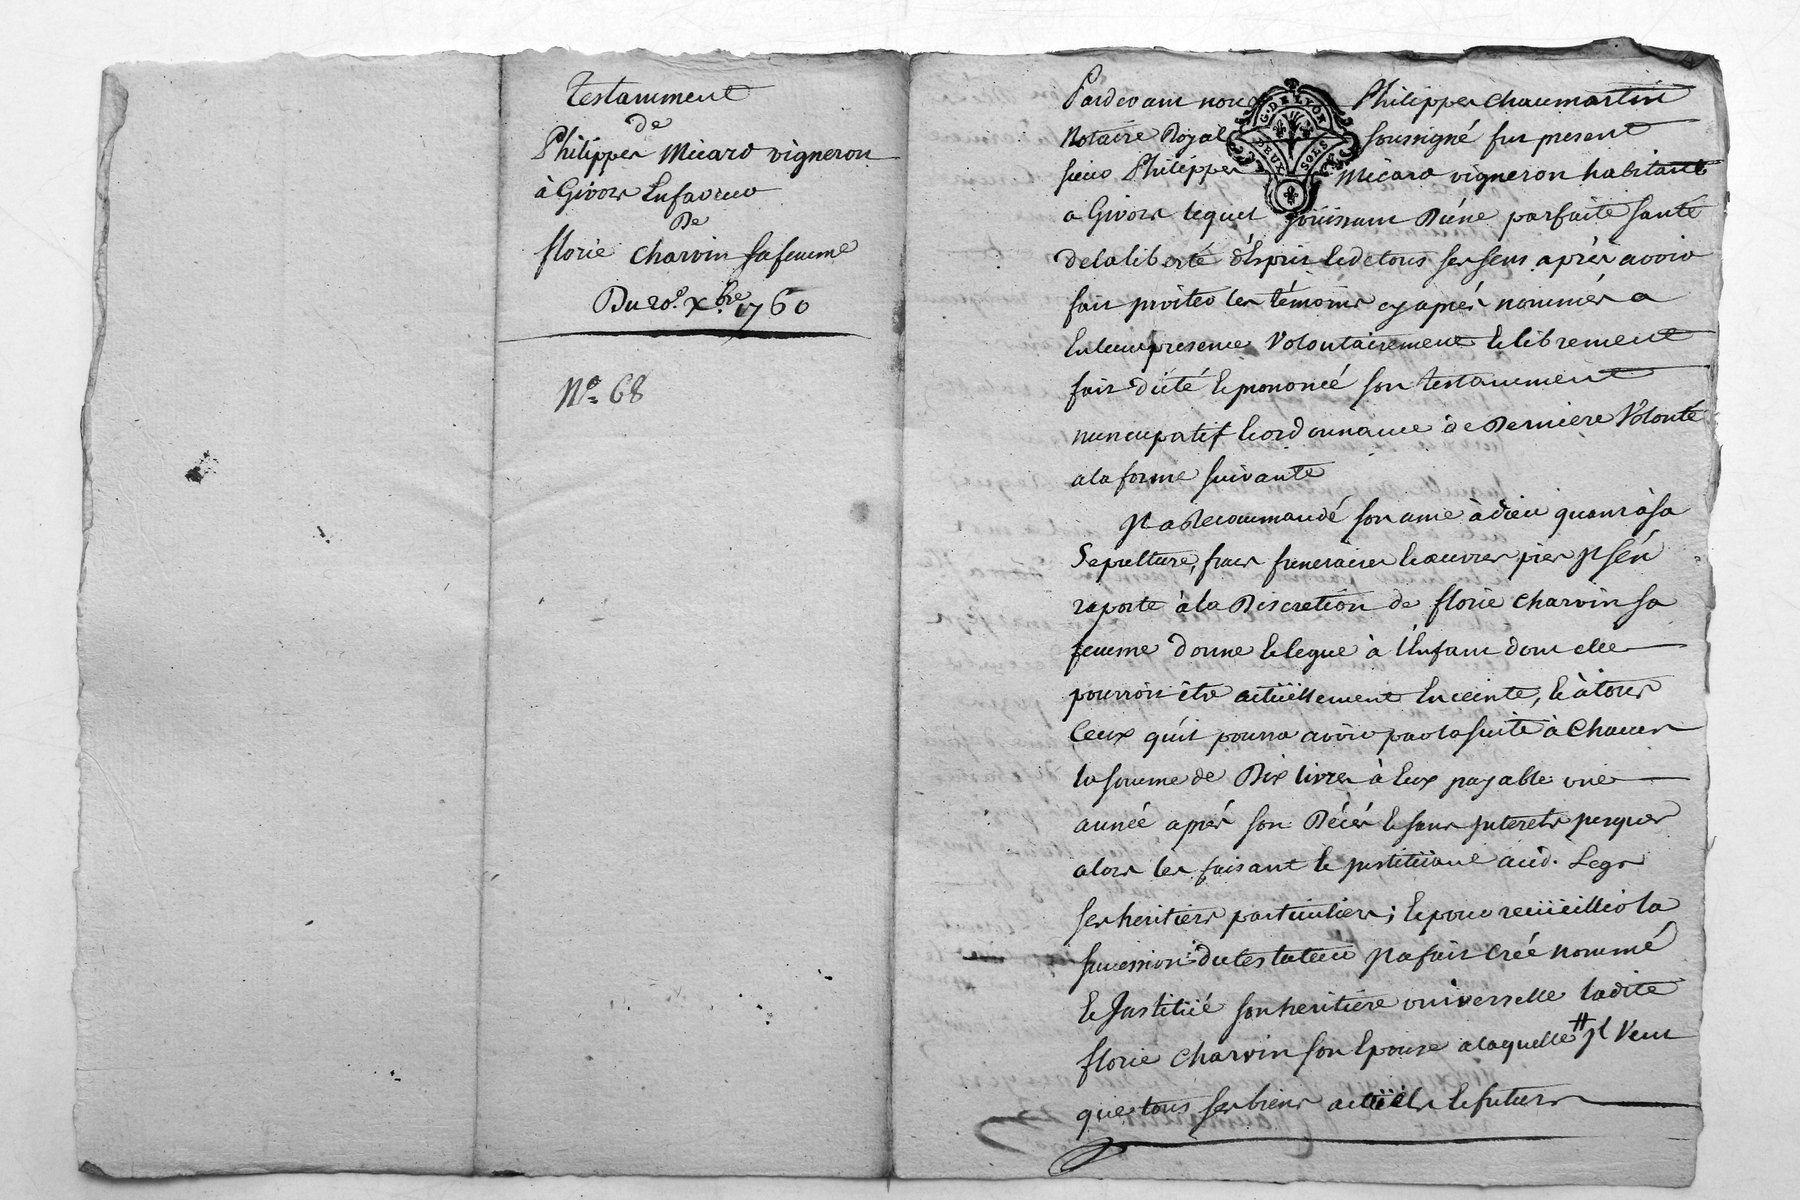 Testamment
de
Philippes Micard vigneron
à Givors Enfaveur
De
florie Charvin safemme
Du 20e. Xbre. 1760
No. 68
Pardevant nous Philippes Chaumartin
G. DE LYON
DEUX SOLS
Notaire Royal soussigné fut present
sieur Philippes Micard vigneron habitant
a Givors lequel joüissant D'üne parfaite santé
delaliberté d'Esprit Et detous ses sens après avoir
fait priter les témoins cy après nommés a
Enleur presence Volontairement Et librement
fait dicté Et prononcé son testamment
nuncupatif Et ordonnance de Derniere Volonté
ala forme suivante
Il a Recommandé son ame à dieu quant à sa
Sepulture, frais funeraires Et œuvres pies Il s'en
raporte à la Discretion de florie Charvin sa
femme donne Et legue à l'Enfant dont elle
pourroit être actüellement Enceinte, Et à tous
Ceux qu'il pourra avoir par la suite à Chacun
la somme de Dix livres à Eux payable une
année après son Décés Et sans Interets jusques
alors les faisant Et instituant aud. Legs
ses heritiers particuliers; Et pour recüeillir la
succession du testateur Il a fait Créé nommé
Et Institüé son heritiere universelle ladite
florie Charvin son Epouse a laquelle # Il Veut
que tous ses biens actüels Et futurs